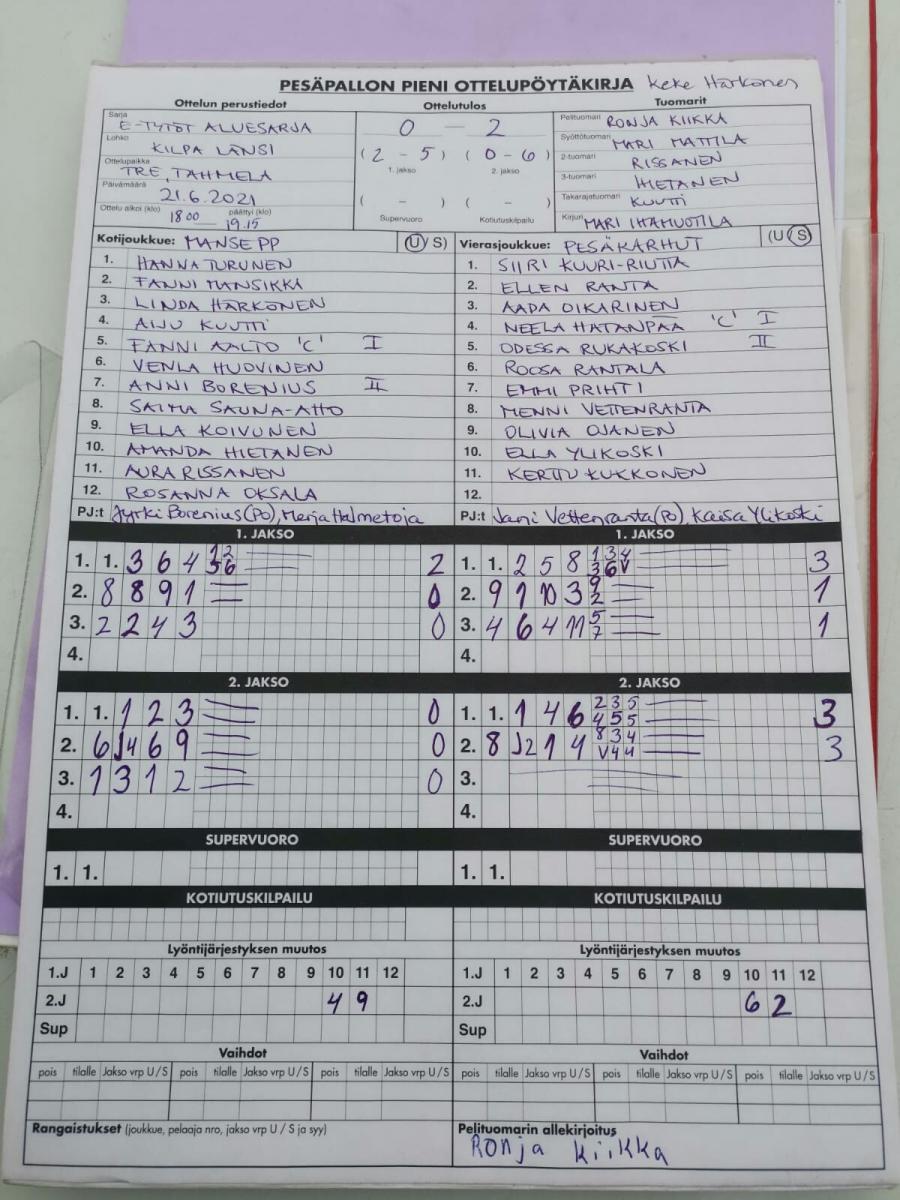 PESÄPALLON PIENI OTTELUPÖYTÄKIRJA Keke Härkönen
Ottelun perustiedot Ottelutulos Tuomarit
Sarja E-TYTÖT ALUESARJA
Lohko KILPA LÄNSI
Ottelupaikka TRE, TAHMELA
Päivämäärä 21.6.2021
Ottelu alkoi (klo) 18 00 päättyi (klo) 19.15
0 - 2
(2 - 5) (0 - 6)
1. jakso 2. jakso
( - ) ( - )
Supervuoro Kotiutuskilpailu
Pelituomari RONJA KIIKKA
Syöttötuomari MARI MATTILA
2-tuomari RISSANEN
3-tuomari HIETANEN
Takarajatuomari KUUTTI
Kirjuri MARI IHAMUOTILA
Kotijoukkue: MANSE PP (U/S)
1. HANNA TURUNEN
2. FANNI MANSIKKA
3. LINDA HÄRKÖNEN
4. AIJU KUUTTI
5. FANNI AALTO 'C' I
6. VENLA HUOVINEN
7. ANNI BORENIUS II
8. SAIMA SAUNA-AHO
9. ELLA KOIVUNEN
10. AMANDA HIETANEN
11. AURA RISSANEN
12. ROSANNA OKSALA
PJ:t Jyrki Borenius (PO), Merja Halmetoja
Vierasjoukkue: PESÄKARHUT (U/S)
1. SIIRI KUURI-RIUTTA
2. ELLEN RANTA
3. AADA OIKARINEN
4. NEELA HATANPÄÄ 'C' I
5. ODESSA RUKAKOSKI II
6. ROOSA RANTALA
7. EMMI PRIHTI
8. MENNI VETTENRANTA
9. OLIVIA OJANEN
10. ELLA YLIKOSKI
11. KERTTU KUKKONEN
12.
PJ:t Jani Vettenranta (PO), Kaisa Ylikoski
1. JAKSO 1. JAKSO
1. 1. 3 6 4 12 56 2
2. 8 8 9 1 0
3. 2 2 4 3 0
4.
1. 1. 2 5 8 134 36V 3
2. 9 1 10 3 9 2 1
3. 4 6 4 11 5 7 1
4.
2. JAKSO 2. JAKSO
1. 1. 1 2 3 0
2. 6 J4 6 9 0
3. 1 3 1 2 0
4.
1. 1. 1 4 6 235 455 3
2. 8 J2 1 4 834 V44 3
3.
4.
SUPERVUORO SUPERVUORO
1. 1. 1. 1.
KOTIUTUSKILPAILU KOTIUTUSKILPAILU
Lyöntijärjestyksen muutos Lyöntijärjestyksen muutos
1.J 1 2 3 4 5 6 7 8 9 10 11 12 1.J 1 2 3 4 5 6 7 8 9 10 11 12
2.J 4 9 2.J 6 2
Sup Sup
Vaihdot Vaihdot
pois tilalle Jakso vrp U/S pois tilalle Jakso vrp U/S pois tilalle Jakso vrp U/S pois tilalle Jakso vrp U/S pois tilalle Jakso vrp U/S pois tilalle Jakso vrp U/S
Rangaistukset (joukkue, pelaaja nro, jakso vrp U / S ja syy) Pelituomarin allekirjoitus
Ronja Kiikka